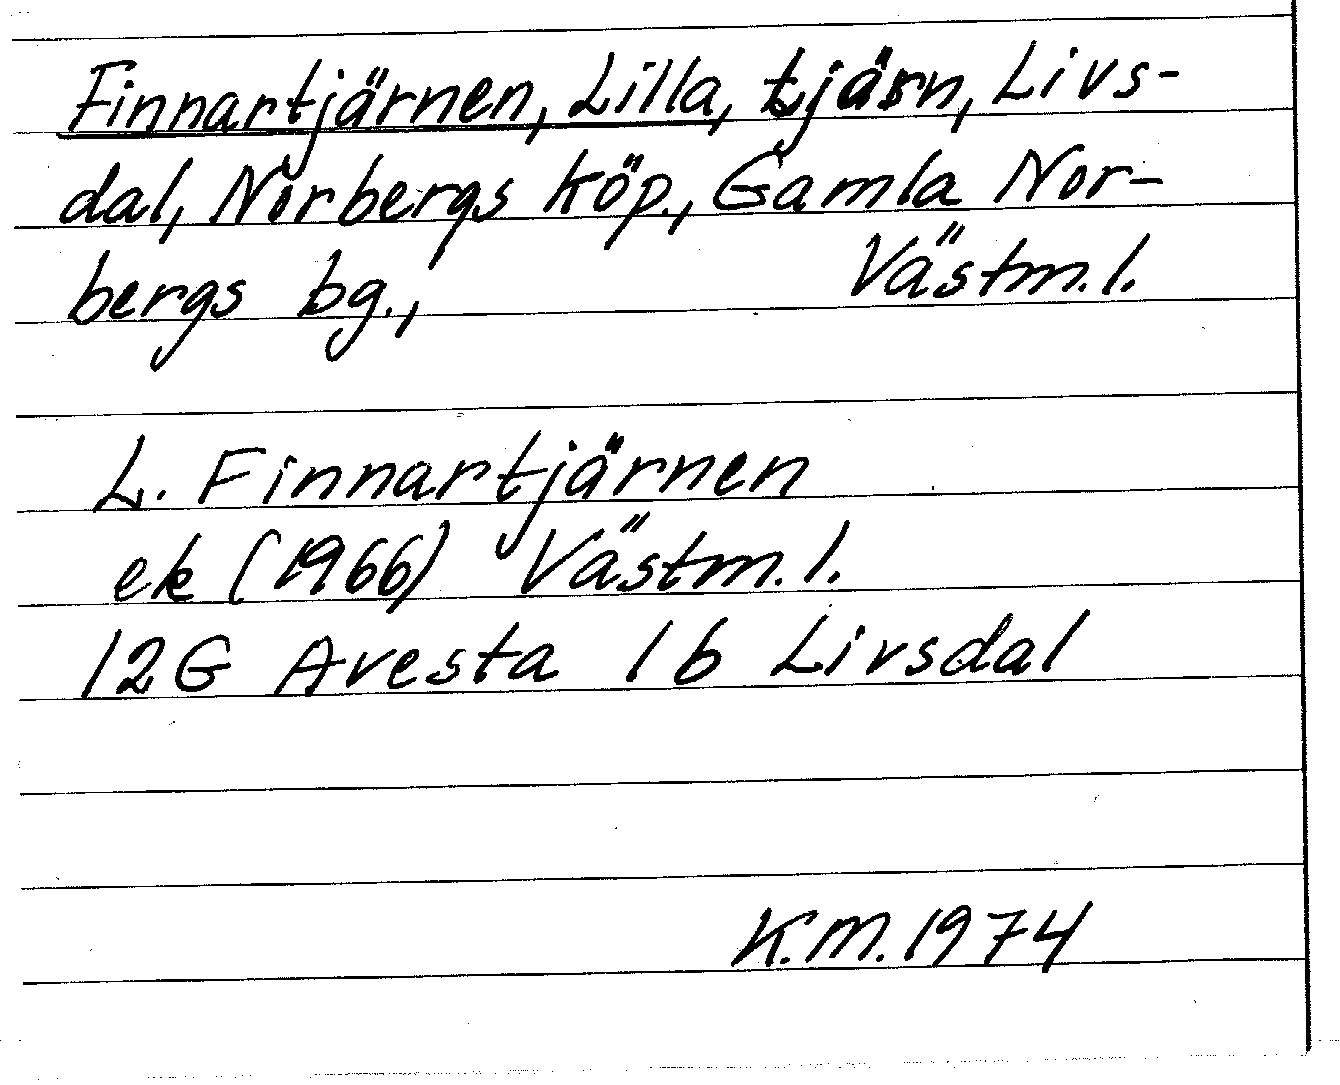 Finnartjärnen, Lilla, tjärn, Livs-
dal, Norbergs köp., Gamla Nor-
bergs bg., Västm.l.
L. Finnartjärnen
ek (1966) Västm.l.
12G Avesta 1b Livsdal
K.M. 1974